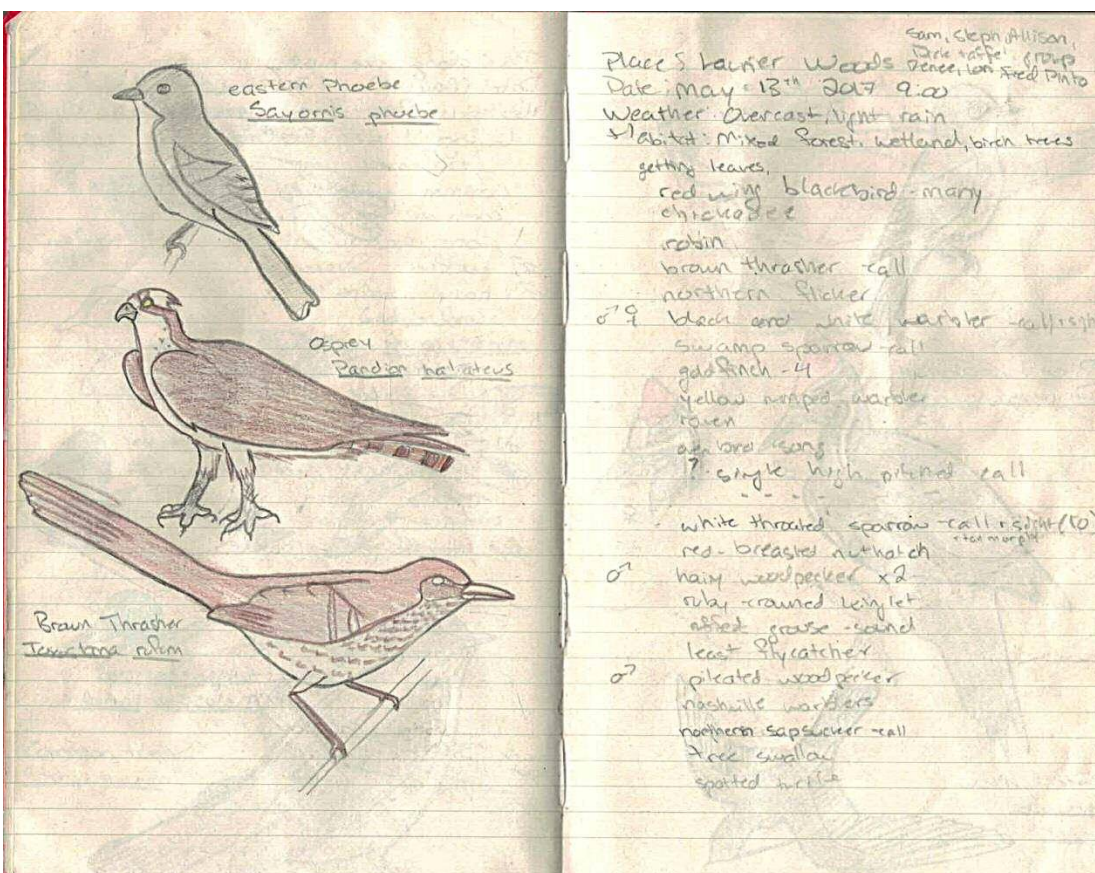 eastern Phoebe
Sayornis phoebe
Osprey
Pandion haliateus
Brown Thrasher
rufum
Sam, Steph, Allison,
group
Place: Laurier Woods Fred Pinto
Date: may 13th 2017 9:00
Weather: Overcast, light rain
Habitat: Mixed forest, wetland, birch trees
getting leaves,
red wing blackbird - many
chickadee
robin
brown thrasher - call
northern flicker
♂ ♀ black and white warbler - call + sight
swamp sparrow - call
goldfinch - 4
yellow rumped warbler
raven
oven bird song
? single high pitched call
- - - -
white throated sparrow - call + sight (10)
red-breasted nuthatch
♂ hairy woodpecker x2
ruby-crowned kinglet
ruffed grouse - sound
least flycatcher
♂ pileated woodpecker
nashville warblers
northern sapsucker - call
tree swallow
spotted turtle